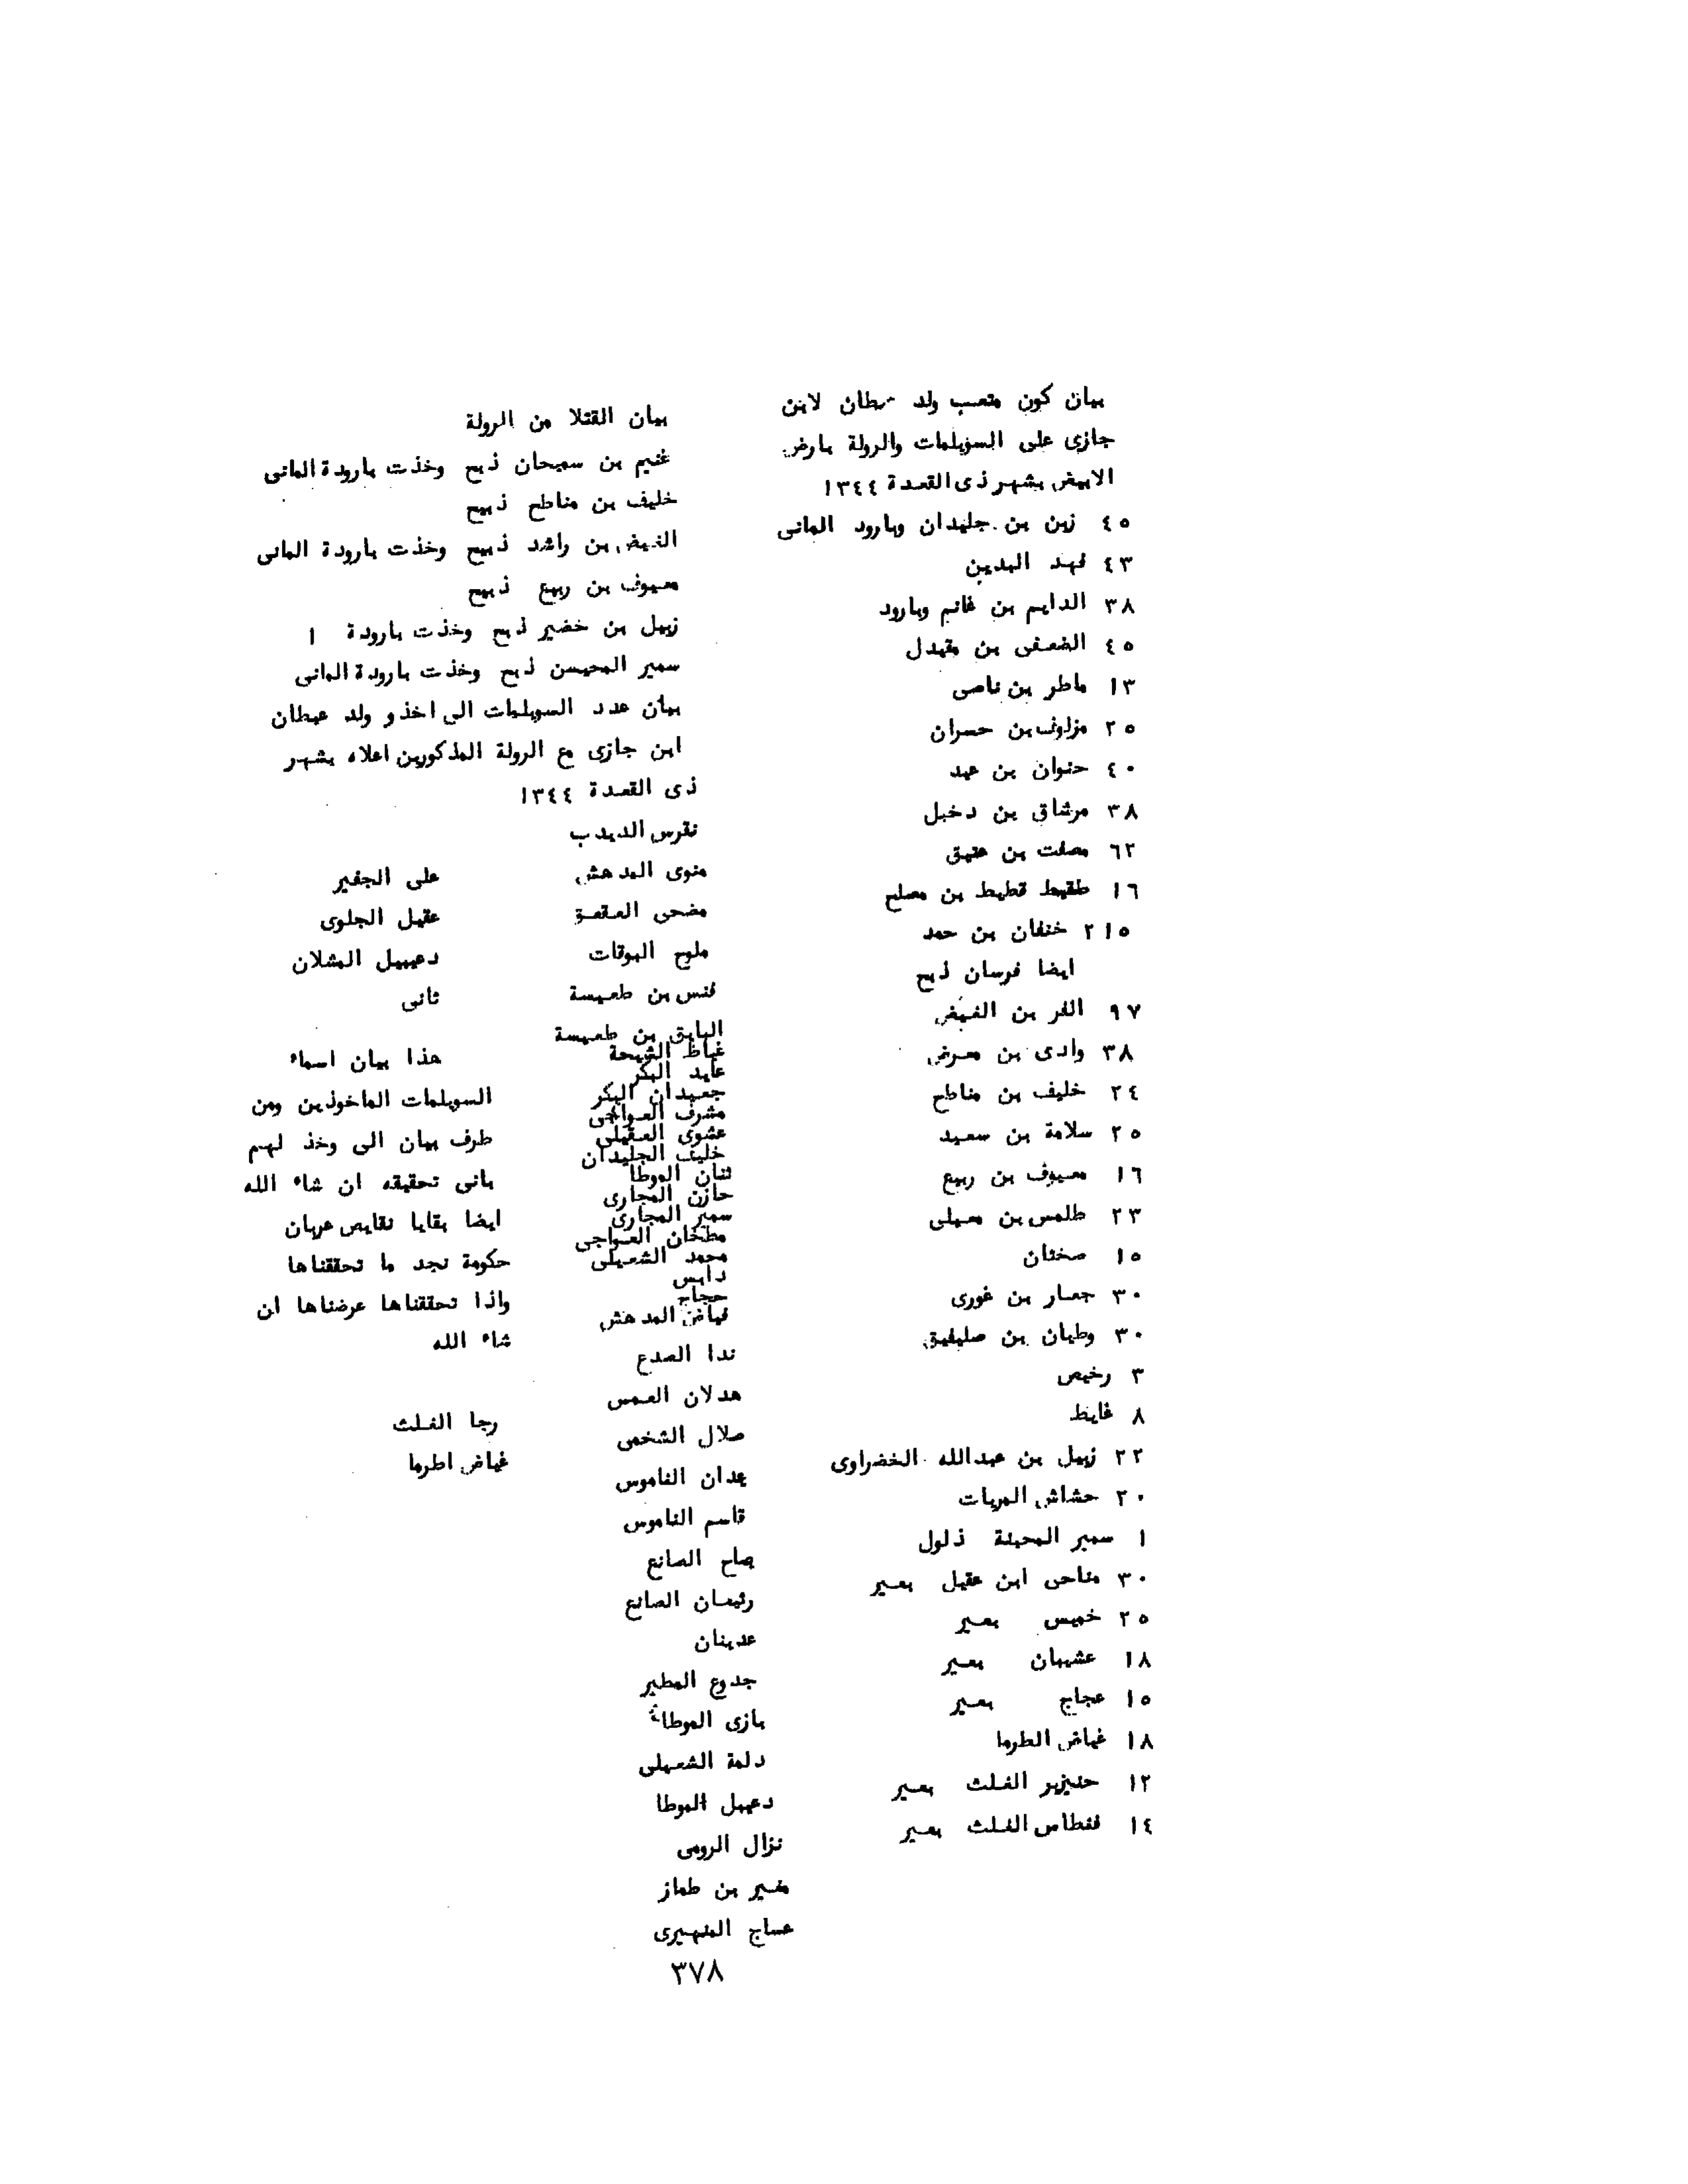 بيان كون متعب ولد عطان لابن
جازى على السويلمات والرولة بارض
الابيض بشهر ذى القعدة ١٣٤٤
٤٥ زبن بن جليدان وبارود المانى
٤٣ فهد البدين
٣٨ الدايم بن غانم وبارود
٤٥ الضعفى بن مقبدل
١٣ ماطر بن ناصى
٢٥ مزلوف بن حسران
٤٠ حنوان بن عيد
٣٨ مرشاق بن دخيل
٦٢ مصلت بن عتيق
١٦ طقيط قطيط بن مصلح
٢١٥ خنفان بن حمد
ايضا فرسان ذبح
٩٧ الفر بن الفيض
٣٨ وادى بن معرض
٢٤ خليف بن مناطح
٢٥ سلامة بن سعيد
١٦ معيوف بن ربيع
٢٣ طلمس بن معيلى
١٥ صخنان
٣٠ جعار بن غورى
٣٠ وطبان بن صليفيق
٣ رخيص
٨ غايط
٢٢ زبيل بن عبدالله الخضراوى
٢٠ حشاش المريات
١ سمير المحينة ذلول
٣٠ مناحى ابن عقيل بعير
٢٥ خميس بعير
١٨ عشيبان بعير
١٥ عجاج بعير
١٨ غياض الطرما
١٢ حنيزير الفلث بعير
١٤ فنطاس الفلث بعير
بيان القتلا من الرولة
غنيم بن سميحان ذبح وخذت بارودة المانى
خليف بن مناطح ذبيح
الفيض بن راشد ذبيح وخذت بارودة المانى
معيوف بن ربيع ذبيح
زبيل بن خضير ذبح وخذت بارودة ١
سمير المحيسن ذبح وخذت بارودة المانى
بيان عدد السويلمات الى اخذو ولد عيطان
ابن جازى مع الرولة المذكورين اعلاه بشهر
ذى القعدة ١٣٤٤
نقرس الديدب
منوى المدهش
مضحى العقعق
ملوح البوقات
فنس بن طعيسة
البايق بن طعيسة
غياظ الشيحة
عايد البكر
جعيدان البكر
مشرف العواجى
عشوى العقيلى
خليف الجليدان
ثنان الموطا
حازن المجارى
سمير المجارى
مطخان العواجى
محمد الشعيلى
دابس
حجاج
فياض المدهش
ندا الصدع
هدلان العمس
صلال الشخمى
عدان الناموس
قاسم الناموس
صاح الصانع
رثيعان الصانع
عدينان
جدوع المطير
بازى الموطاء
دلمة الشعيلى
دعيبل الموطا
نزال الرومى
منير بن طماز
عساج المنهيرى
على الجفير
عقيل الجلوى
دعيبيل المشلان
ثانى
هذا بيان اسماء
السويلمات الماخوذين ومن
طرف بيان الى وخذ لهم
يانى تحقيقه ان شاء الله
ايضا بقايا نقايص عربان
حكومة نجد ما تحققناها
واذا تحققناها عرضناها ان
شاء الله
رجا الفلث
غياض اطرما
٣٧٨